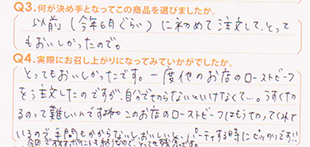 Q3.何が決め手となってこの商品を選びましたか。
以前(今年6月ぐらい)に初めて注文して、とって
もおいしかったので。
Q4.実際にお召し上がりになってみていかがでしたか。
とってもおいしかったです。一度他のお店のローストビーフ
を注文したのですが、自分で切らないといけなくて…。うすく切
るのって難しいんですよね。このお店のローストビーフはもう切ってくれて
いるので、手間もかからないし、おいしいし、パーティする時にピッタリです!!